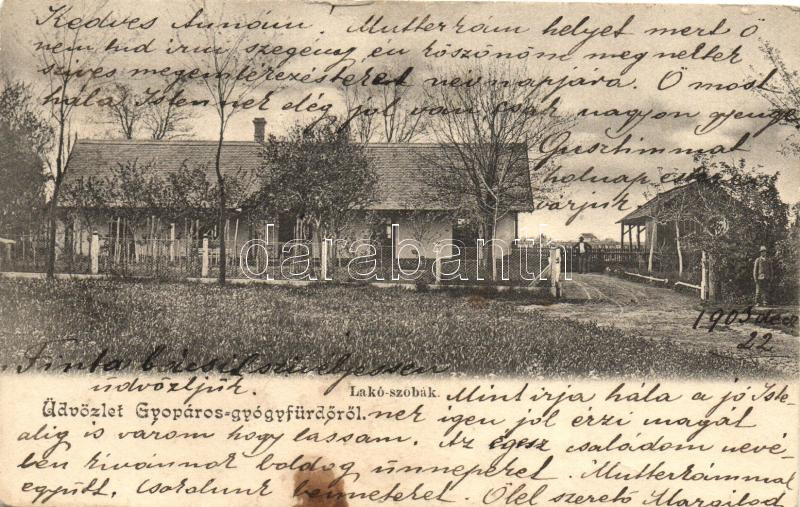 Kedves Annám. Mutterkám helyet mert ő
nem tud irni szegény én köszönöm meg neked
szives megemlékezésteket nevnapjára. Ő most
hála Istennek elég jól van csak nagyon gyenge
Gusztimmal
holnap estére
várjuk
darabanth
1903 dec
22
Finta bácsit szivéljessen
üdvözljük.
Lakó-szobák.
Üdvözlet Gyopáros-gyógyfürdőről.
Mint irja hála a jó Iste-
nek igen jól érzi magát
alig is várom hogy lássam. Az egész családom nevé-
ben kivánnok boldog ünnepeket. Mutterkámmal
együtt. Csokolunk benneteket. Ölel szerető Margitod